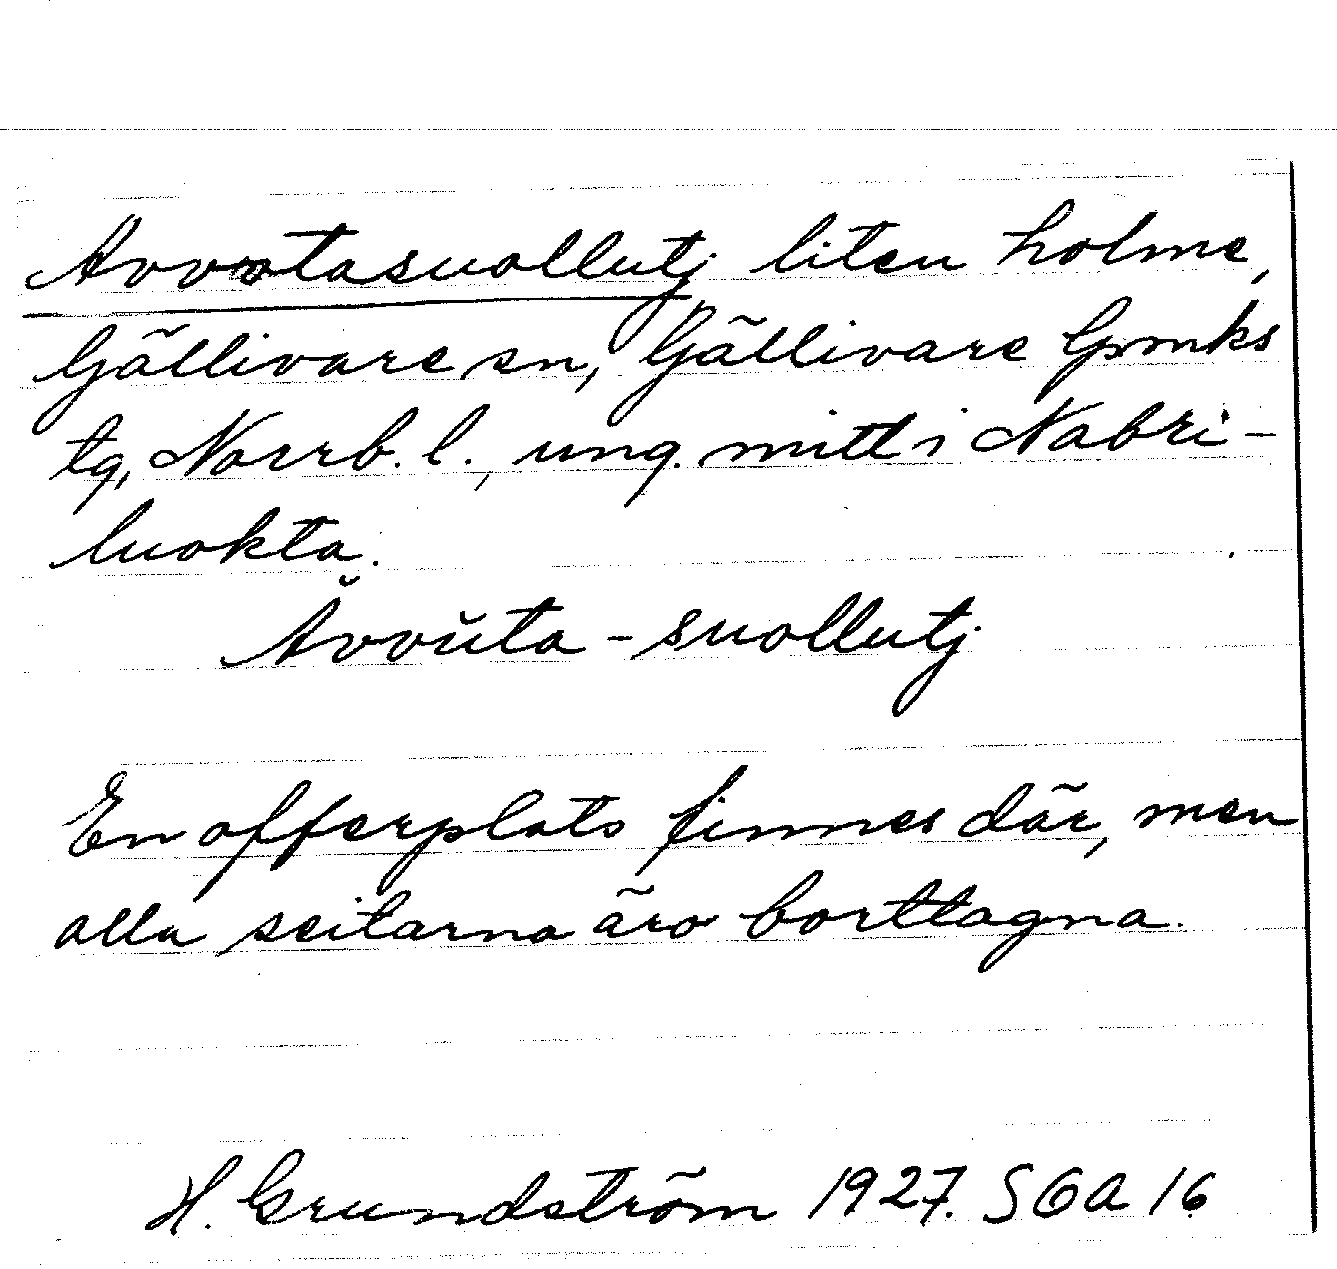 Avvotasuollutj liten holme,
Gällivare sn, Gällivare lpmks
tg, Norrb. l., ung. mitt i Nabri-
luokta.
Ăvvŭta - suollutj
En offerplats finnes där, men
alla seitarna äro borttagna.
H. Grundström 1927. SOA 16